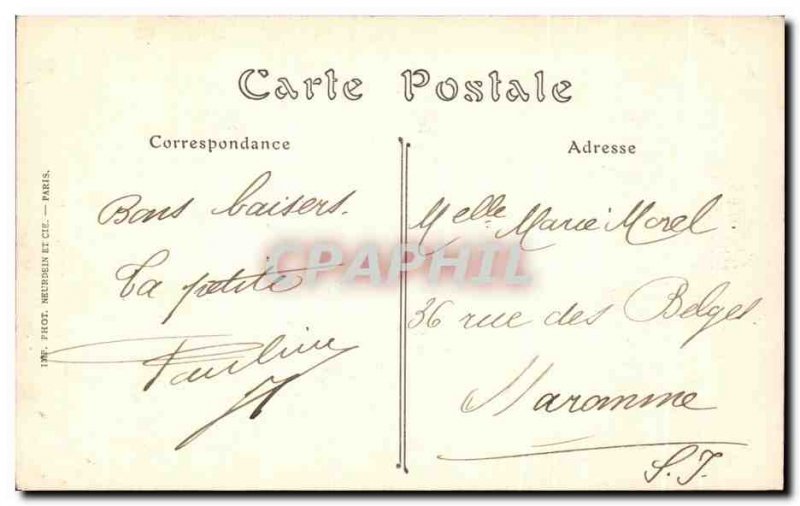 Carte Postale
Correspondance
Bons baisers.
Ta petite
Pauline
Adresse
Melle Marie Morel.
36 rue des Belges
Maromme
S. I.
IMP. PHOT. NEURDEIN ET CIE. — PARIS.
CPAPHIL